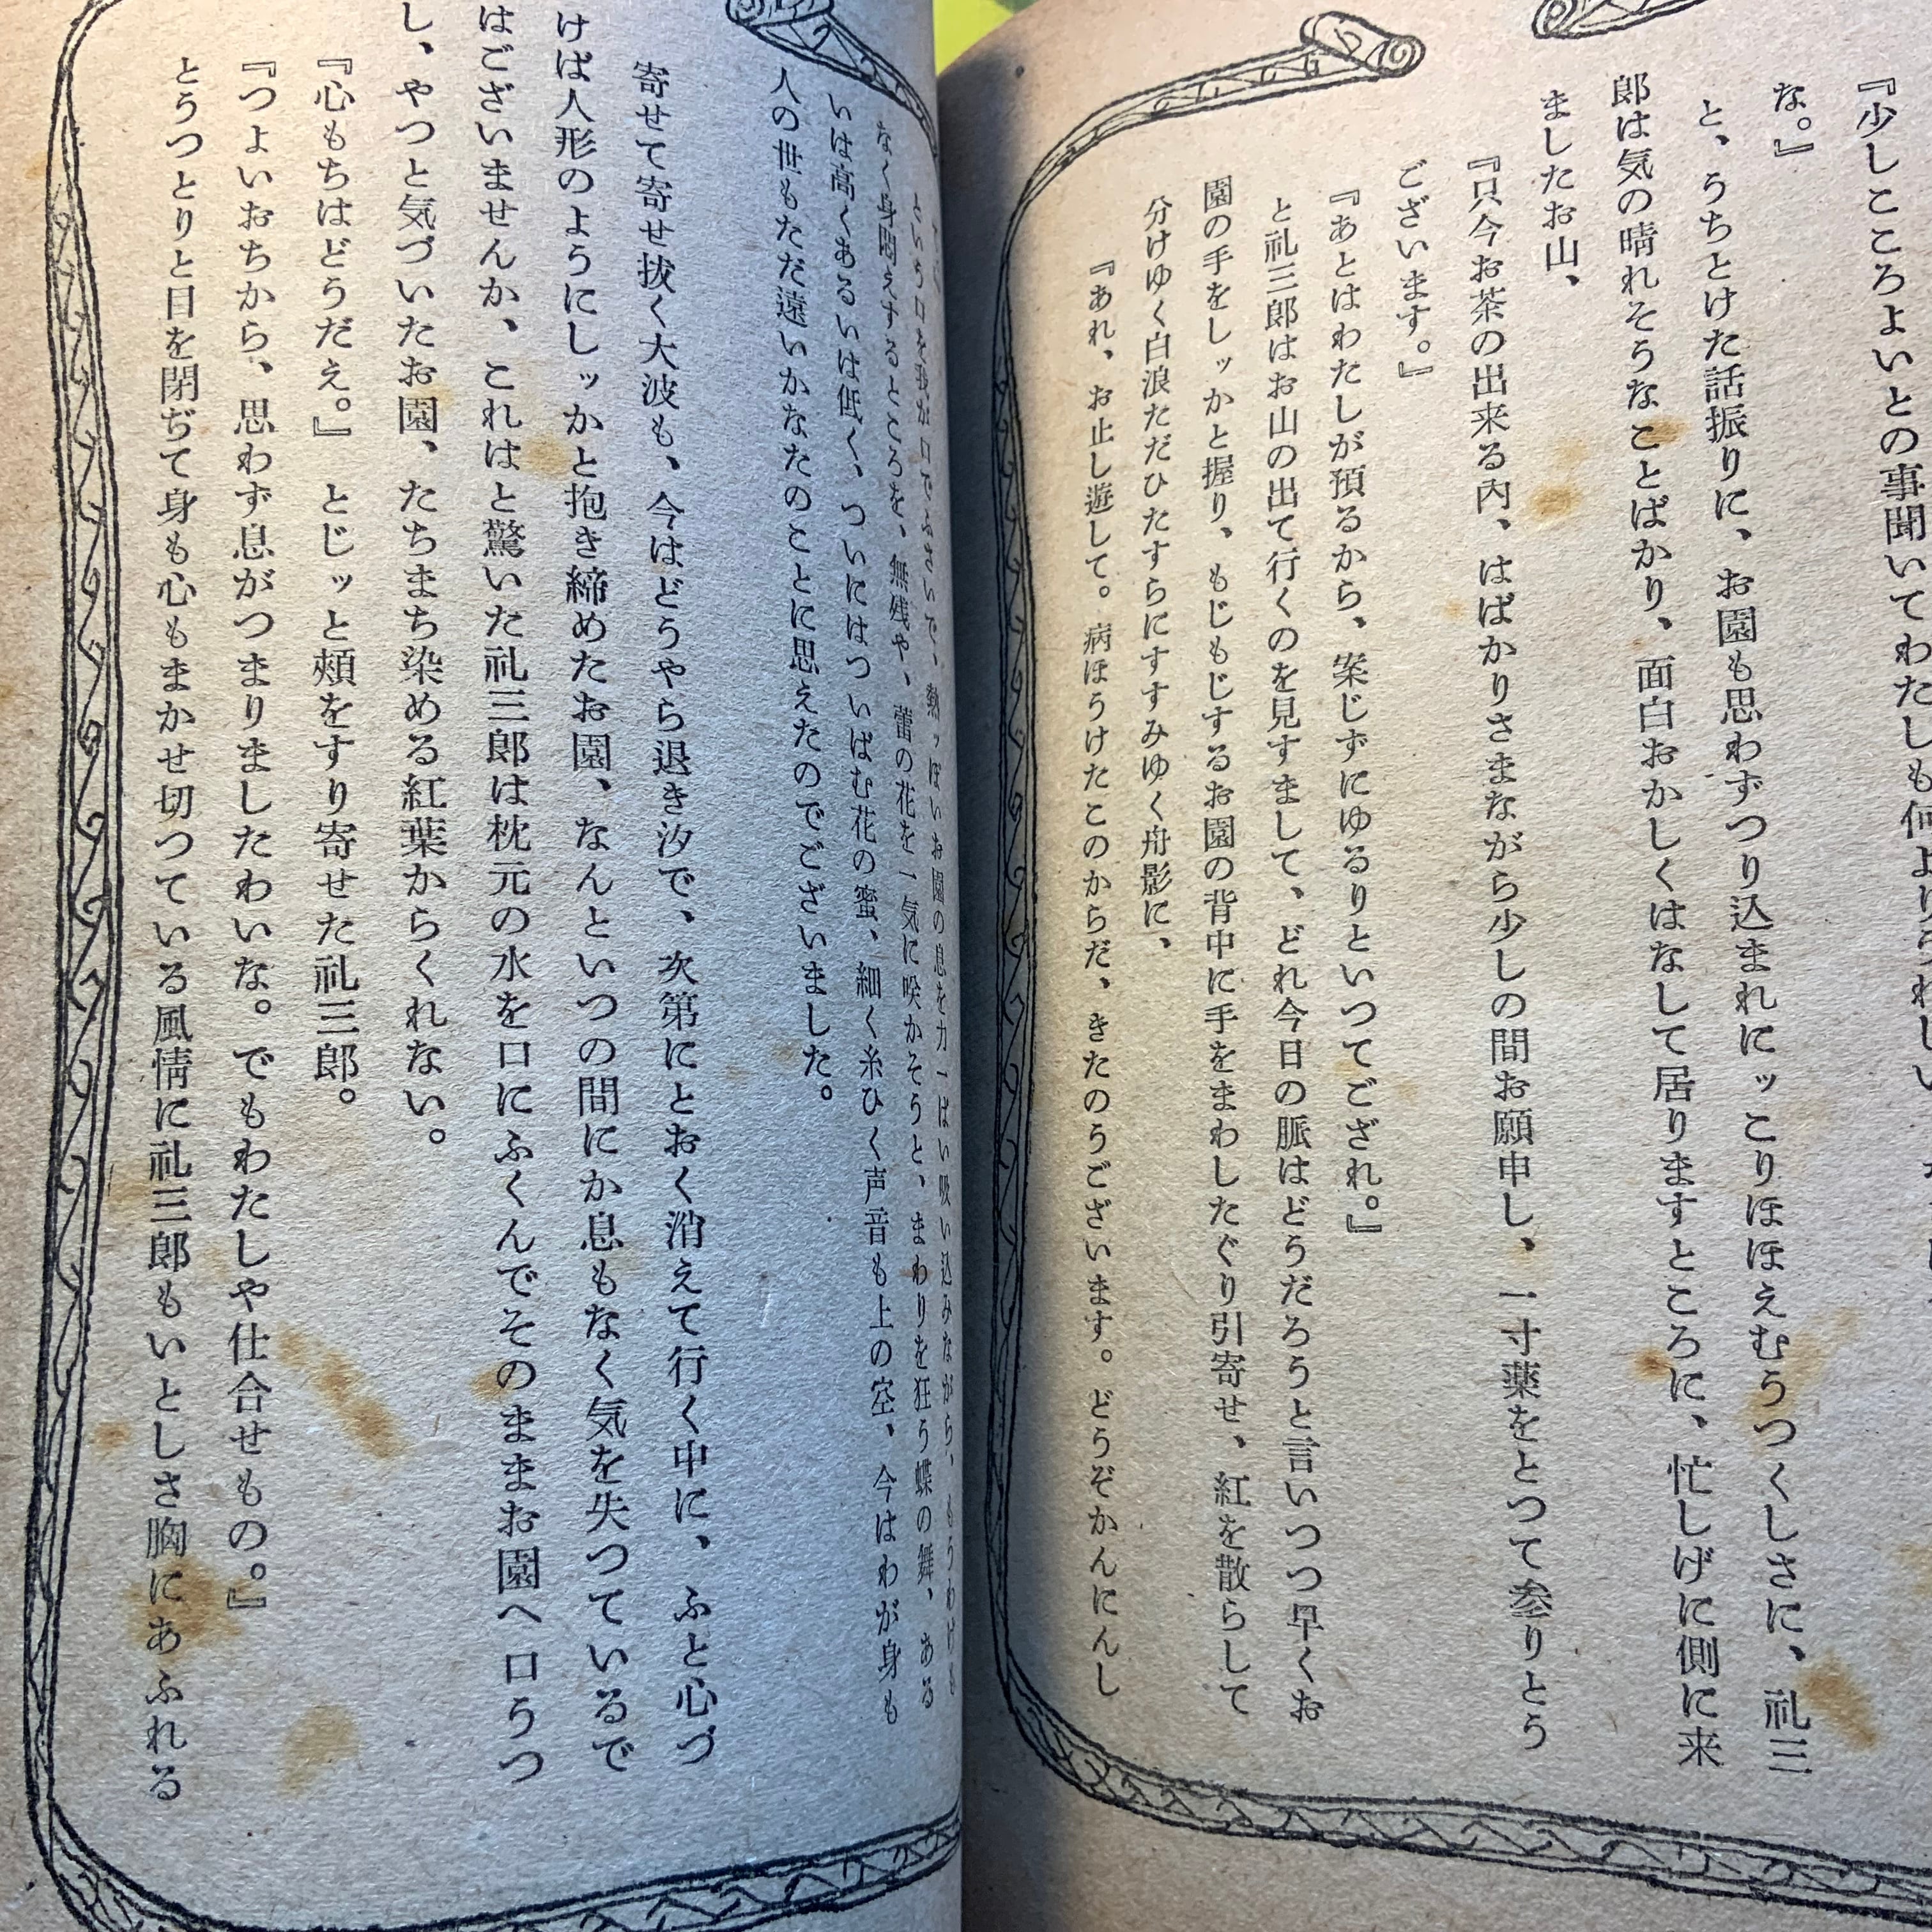 『少しこころよいとの事聞いてわたしも何よりうれしい
な。』
と、うちとけた話振りに、お園も思わずつり込まれにッこりほほえむうつくしさに、礼三
郎は気の晴れそうなことばかり、面白おかしくはなして居りますところに、忙しげに側に来
ましたお山、
『只今お茶の出来る内、はばかりさまながら少しの間お願申し、一寸薬をとつて参りとう
ございます。』
『あとはわたしが預るから、案じずにゆるりといつてござれ。』
と礼三郎はお山の出て行くのを見すまして、どれ今日の脈はどうだろうと言いつつ早くお
園の手をしッかと握り、もじもじするお園の背中に手をまわしたぐり引寄せ、紅を散らして
分けゆく白浪ただひたすらにすすみゆく舟影に、
『あれ、お止し遊して。病ほうけたこのからだ、きたのうございます。どうぞかんにんし
という口を我が口でふさいで、熱ッぽいお園の息を力一ぱい吸い込みながら、もうわけも
なく身悶えするところを、無残や、蕾の花を一気に咲かそうと、まわりを狂う蝶の舞、ある
いは高くあるいは低く、ついにはついばむ花の蜜、細く糸ひく声音も上の空、今はわが身も
人の世もただ遠いかなたのことに思えたのでございました。
寄せて寄せ抜く大波も、今はどうやら退き汐で、次第にとおく消えて行く中に、ふと心づ
けば人形のようにしッかと抱き締めたお園、なんといつの間にか息もなく気を失つているで
はございませんか、これはと驚いた礼三郎は枕元の水を口にふくんでそのままお園へ口うつ
し、やつと気づいたお園、たちまち染める紅葉からくれない。
『心もちはどうだえ。』とじッと頰をすり寄せた礼三郎。
『つよいおちから、思わず息がつまりましたわいな。でもわたしや仕合せもの。』
とうつとりと目を閉ぢて身も心もまかせ切つている風情に礼三郎もいとしさ胸にあふれる